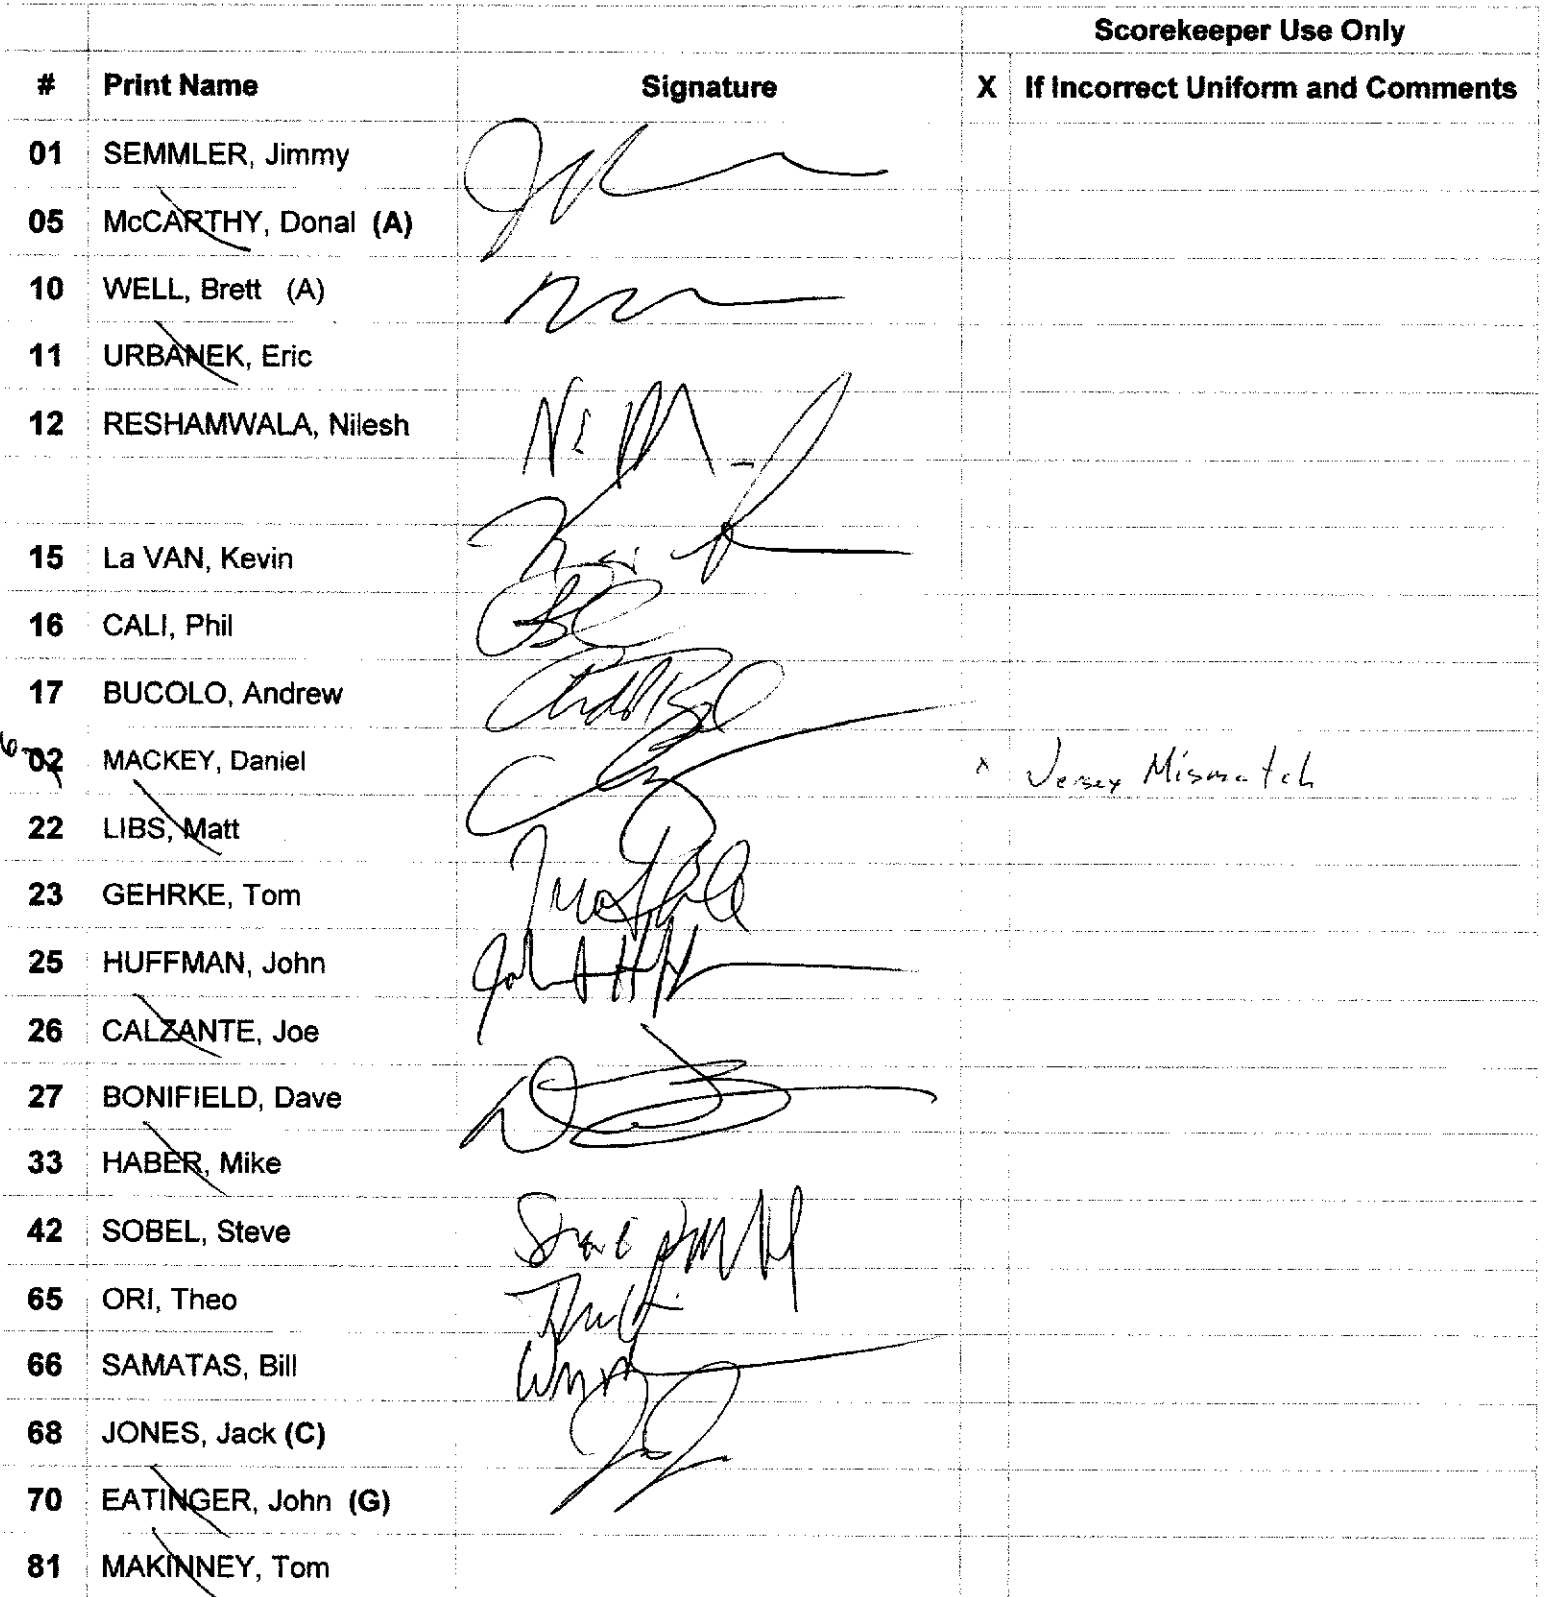 Scorekeeper Use Only
# Print Name Signature X If Incorrect Uniform and Comments
01 SEMMLER, Jimmy
05 McCARTHY, Donal (A)
10 WELL, Brett (A)
11 URBANEK, Eric
12 RESHAMWALA, Nilesh
15 La VAN, Kevin
16 CALI, Phil
17 BUCOLO, Andrew
02 MACKEY, Daniel x Jersey Mismatch
22 LIBS, Matt
23 GEHRKE, Tom
25 HUFFMAN, John
26 CALZANTE, Joe
27 BONIFIELD, Dave
33 HABER, Mike
42 SOBEL, Steve
65 ORI, Theo
66 SAMATAS, Bill
68 JONES, Jack (C)
70 EATINGER, John (G)
81 MAKINNEY, Tom